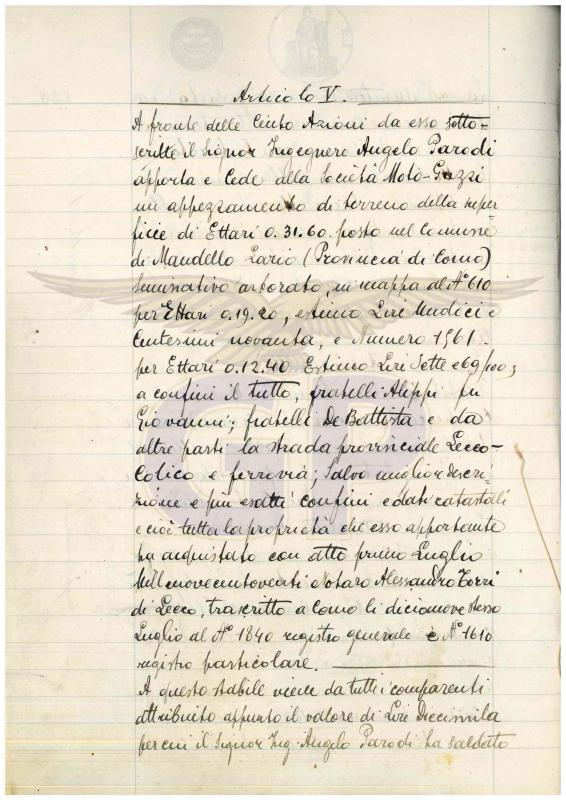 Articolo V.
A fronte delle Cento Azioni da esso sotto=
scritte il Signor Ingegnere Angelo Parodi
apporta e cede alla Società Moto-Guzzi
un appezzamento di terreno della super
ficie di Ettari 0.31.60. posto nel Comune
di Mandello Lario (Provincia di Como)
Seminativo arborato, in mappa al No 610
per Ettari 0.19.20, estimo Lire Undici e
Centesimi novanta, e Numero 1961.
per Ettari 0.12.40 Estimo Lire Sette e 69/100;
a confini il tutto, fratelli Alippi fu
Giovanni; fratelli De Battista e da
altre parti la strada provinciale Lecco-
Colico e ferrovia; Salvo miglior descri=
zione e più esatti confini e dati catastali
e cioè tutta la proprietà che esso apportante
ha acquistato con atto primo Luglio
Millenovecentoventi Notaro Alessandro
di Lecco, trascritto a Como li diciannove stesso
Luglio al No 1840 registro generale e No 1610
registro particolare.
A questo stabile viene da tutti i comparenti
attribuito appunto il valore di Lire Diecimila
per cui il Signor Ing. Angelo Parodi ha saldato
GP